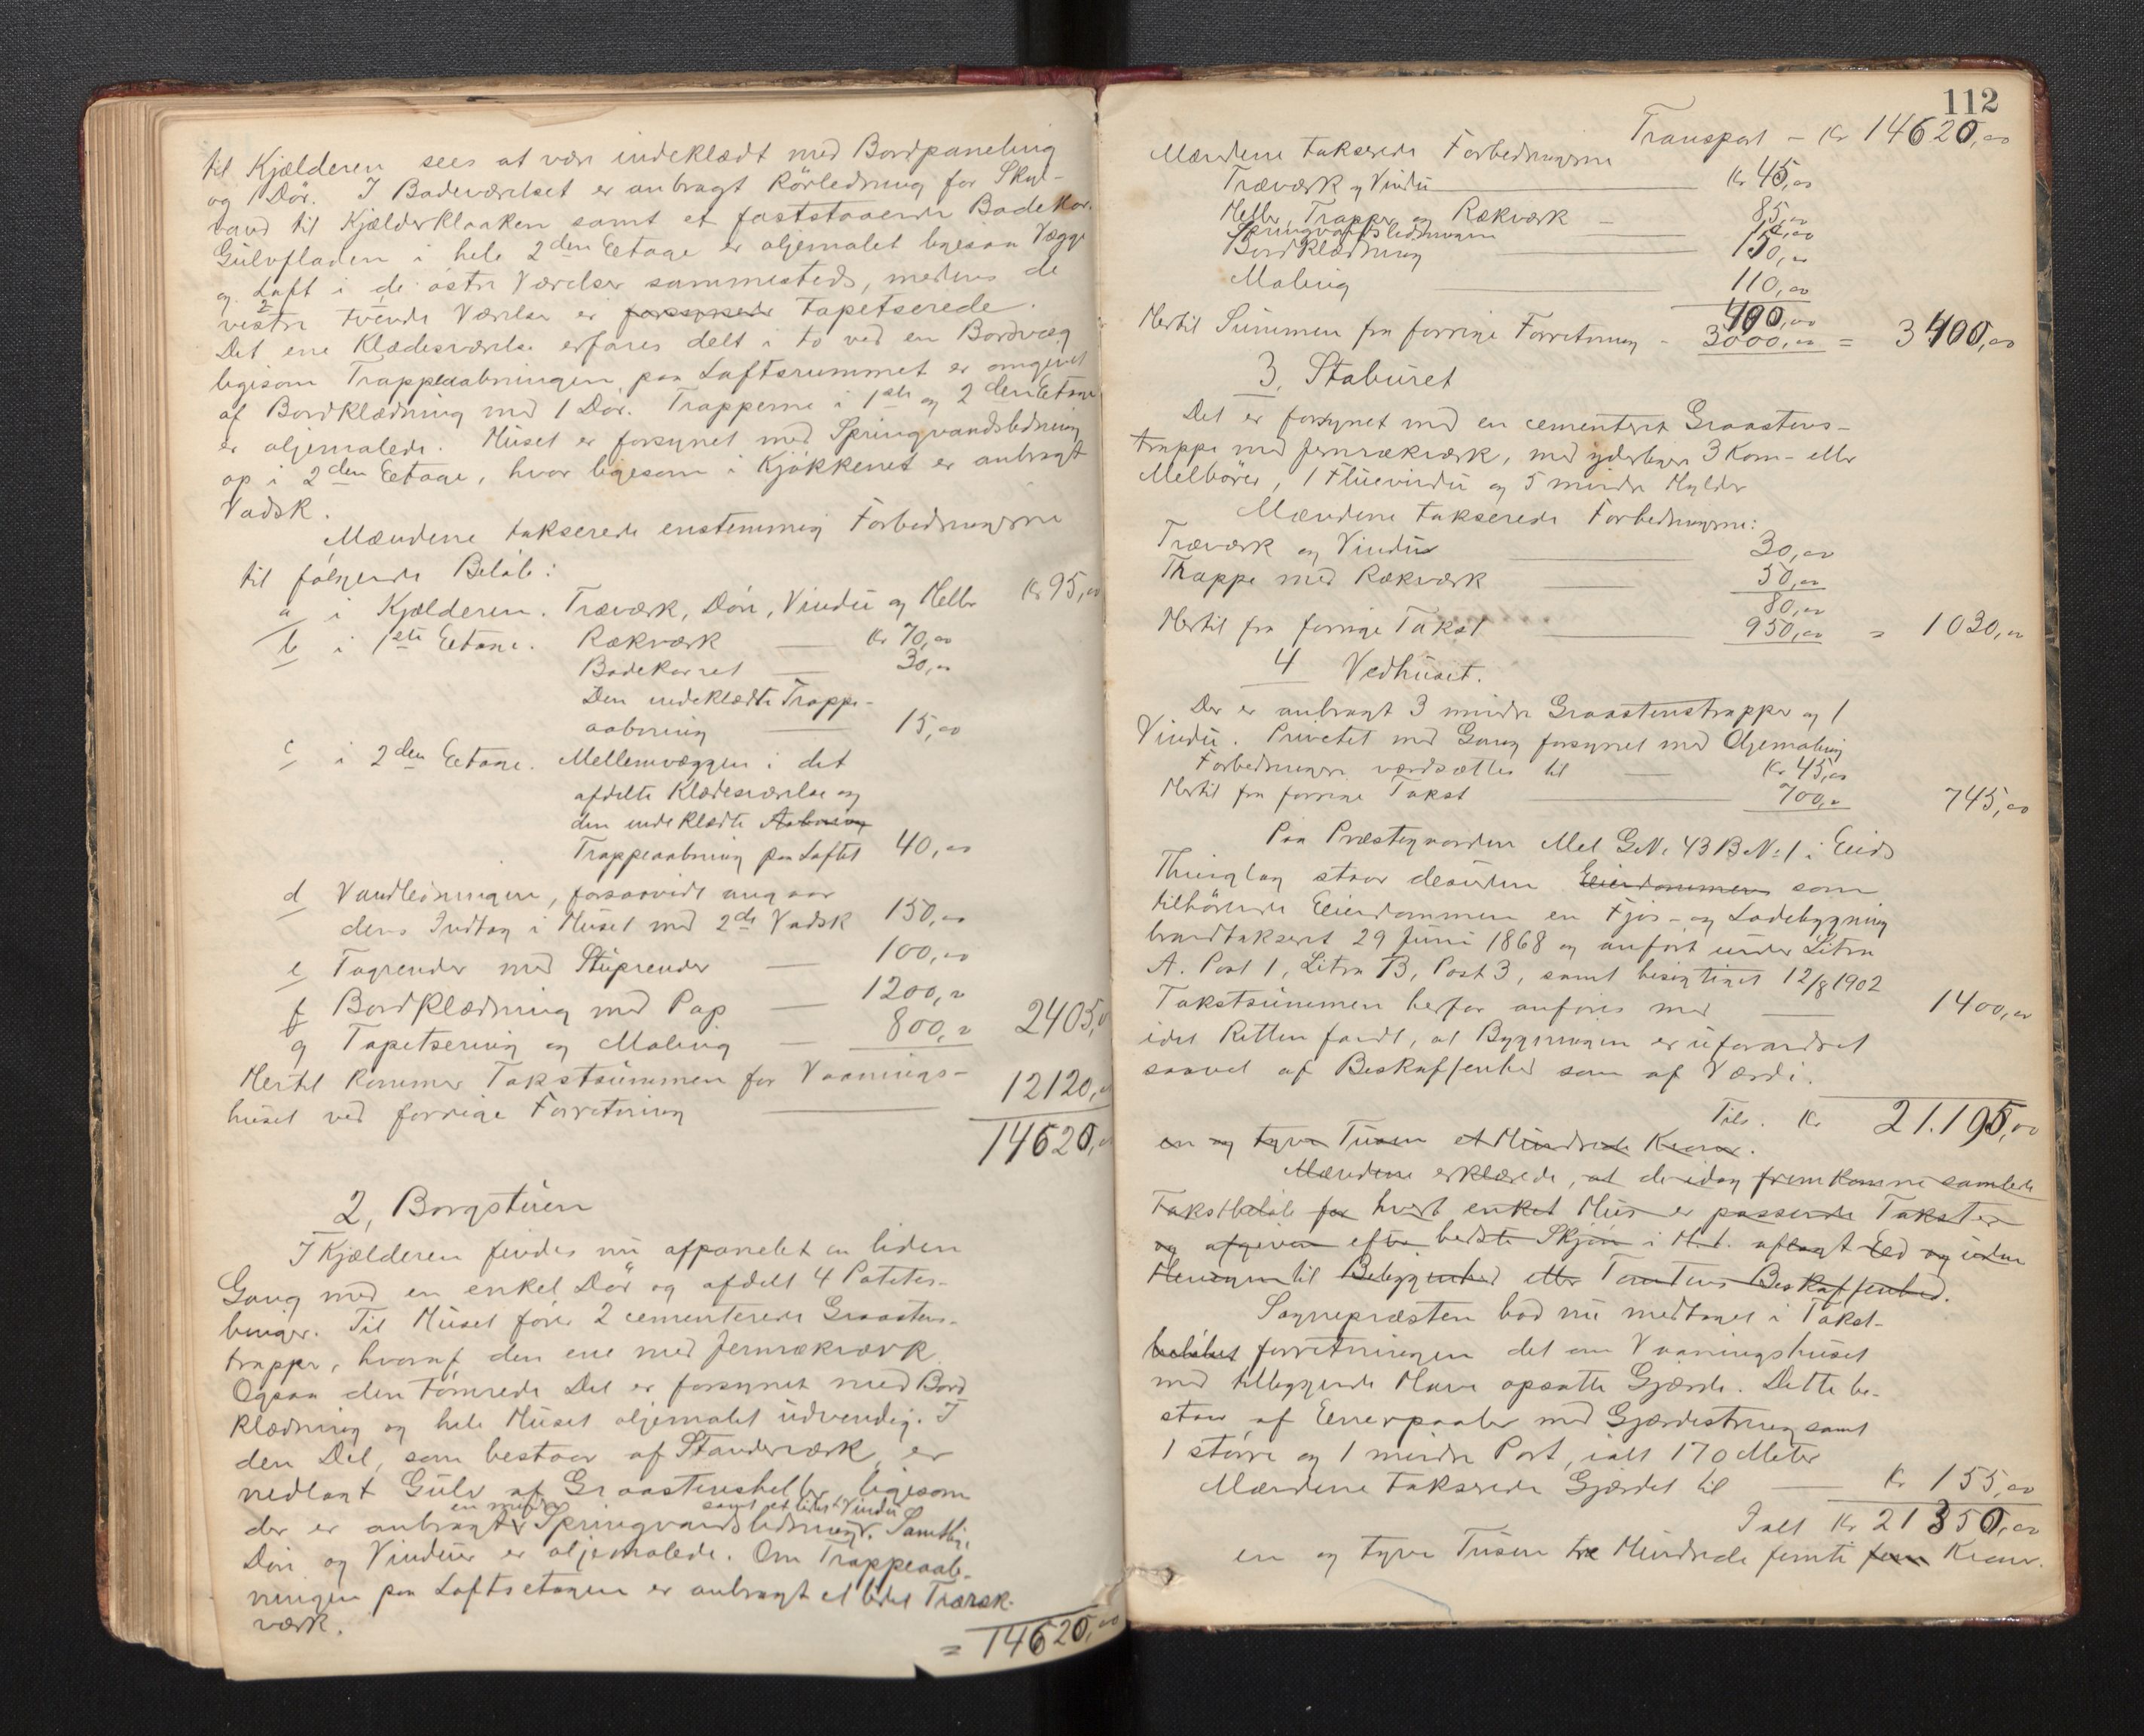 til Kjælderen sees at være indeklædt med Bordpaneling
og 1 Dør. I Badeværelset er anbragt Rørledning for Skyl-
vand til Kjælderkloaken samt et faststaaende Badekar.
Gulvfladen i hele 2den Eetage er oljemalet ligesaa Vægge
og Loft i de 2 østre Værelser sammesteds, medens de
vestre tvende Værelser er forsynede tapetserede.
Det ene Klædesværelse erfares delt i to ved en Bordvæg
ligesom Trappeaabningen paa Loftsrummet er omgivet
af Bordklædning med 1 Dør. Trapperne i 1ste og 2den Eetage
er oljemalede. Huset er forsynet med Springvandsledning
op i 2den Eetage, hvor ligesom i Kjøkkenet er anbragt
Vadsk.
Mændene takserede enstemmig Forbedringerne
til følgende Beløb:
a i Kjælderen. Træværk, Døre, Vindu og Heller Kr 95,00
b i 1ste Eetage. Rækværk — Kr 70,00
Badekarret — 30,00
Den indeklædte Trappe-
aabning — 15,00
c i 2den Eetage. Mellemvæggen i det
afdelte Klædesværelse og
den indeklædte Aabning
Trappeaabning paa Loftet 40,00
d Vandledningen, forsaavidt angaar
dens Indtag i Huset med 2de Vadsk 150,00
e Tagrender med Stuprender — 100,00
f Bordklædning med Pap — 1200,00
g Tapetsering og Maling — 800,00 2405,00
Hertil kommer Takstsummen for Vaanings-
huset ved forrige Forretning — 12120,00
14620,00
2, Borgstuen
I Kjælderen findes nu afpanelet en liden
Gang med en enkel Dør og afdelt 4 Potetes-
binger. Til Huset fører 2 cementerede Graastens-
trapper, hvoraf den ene med Jernrækværk.
Ogsaa den tømrede Del er forsynet med Bord
klædning og hele Huset oljemalet udvendig. I
den Del, som bestaar af Standerværk, er
nedlagt Gulv af Graastensheller, ligesom
en mindre samt et lidet Vindu
der er anbragt Springvandsledninger. Samtlige
Døre og Vinduer er oljemalede. Om Trappeaab-
ningen paa Loftsetagen er anbragt et lidet Træræk-
værk.
= 14620,00
112
Transport — Kr 14620,00
Mændene takserede Forbedringerne
Træværk og Vindu — Kr 45,00
Heller, Trapper og Rækværk — 85,00
Springvandsledningen —
Bordklædning — 150,00
Maling — 110,00
400,00
Hertil Summen fra forrige Forretning - 3000,00 = 3400,00
3, Staburet
Det er forsynet med en cementeret Graastens-
trappe med Jernrækværk, med yderligere 3 Korn- eller
Melbører, 1 Fluevindu og 5 mindre Hylder
Mændene takserede Forbedringerne:
Træværk og Vindu — 30,00
Trappe med Rækværk — 50,00
80,00
Hertil fra forrige Takst — 950,00 = 1030,00
4 Vedhuset.
Der er anbragt 3 mindre Graastenstrapper og 1
Vindu. Privetet med Gang forsynet med Oljemaling
Forbedringerne værdsættes til — Kr 45,00
Hertil fra forrige Takst — 700,00 745,00
Paa Præstegaarden Mel G.No. 43 B.No. 1 i Eids
Thinglag staar desuden Eiendommen som
tilhørende Eiendommen en Fjøs- og Ladebygning
brandtakseret 29 Juni 1868 og anført under Litra
A. Post 1, Litra B, Post 3, samt besigtiget 12/8 1902
Takstsummen herfor anføres med — 1400,00
idet Retten fandt, at Bygningen er uforandret
saavel af Beskaffenhed som af Værdi.
Tils. Kr 21.195,00
en og tyve Tusen et Hundrede Kroner.
Mændene erklærede, at de idag fremkomne samlede
Takstbeløb for hvert enkelt Hus er passende Takster
og afgiven efter bedste Skjøn i H.t. aflagt Eed og uden
Hensyn til Bebyggenhed eller Tomtens Beskaffenhed.
Sognepræsten bad nu medtaget i Takst-
beløbet forretningen det om Vaaningshuset
med tilliggende Have opsatte Gjærde. Dette be-
staar af Einerpaaler med Gjærdestreng samt
1 større og 1 mindre Port, ialt 170 Meter
Mændene takserede Gjærdet til — Kr 155,00
Ialt Kr 21350,00
en og tyve Tusen tre Hundrede femti fem Kroner.